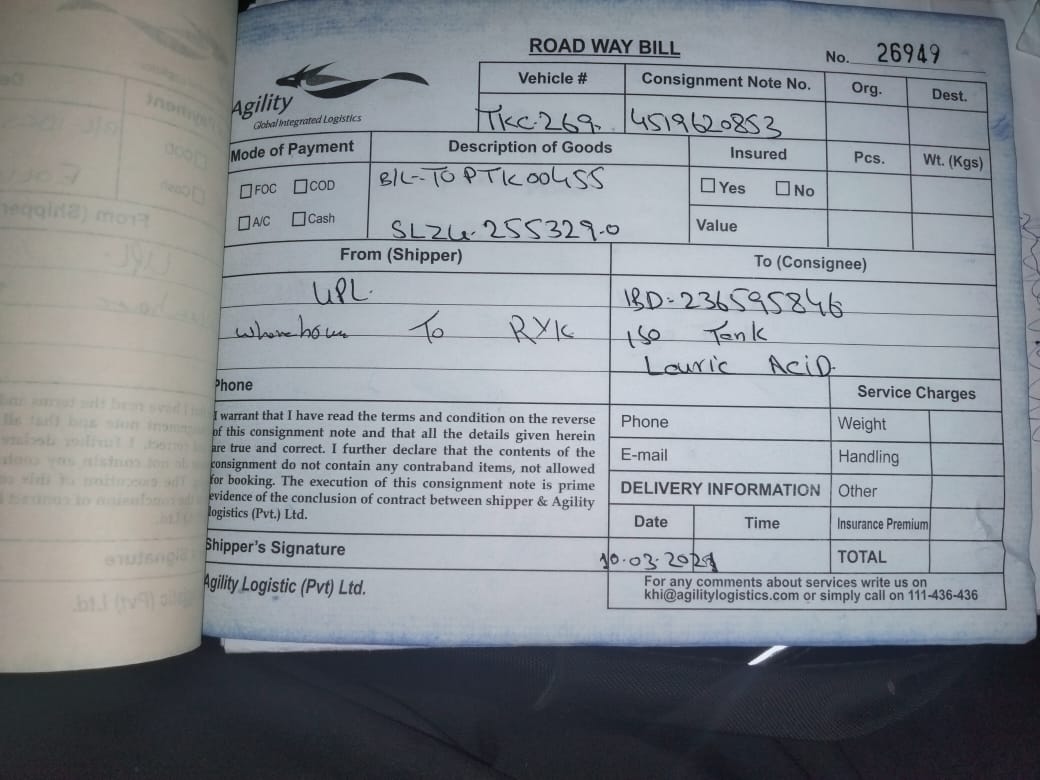 ROAD WAY BILL
No. 26949
Agility
Global Integrated Logistics
Vehicle #
Consignment Note No.
Org.
Dest.
TKC-269
4519620853
Mode of Payment
Description of Goods
Insured
Pcs.
Wt. (Kgs)
FOC
COD
B/L-TOPTK00455
Yes
No
A/C
Cash
SLZU-255329-0
Value
From (Shipper)
To (Consignee)
UPL
IBD-236595846
To RYK
ISO Tank
Lauric Acid
Phone
Service Charges
I warrant that I have read the terms and condition on the reverse
of this consignment note and that all the details given herein
are true and correct. I further declare that the contents of the
consignment do not contain any contraband items, not allowed
for booking. The execution of this consignment note is prime
evidence of the conclusion of contract between shipper & Agility
logistics (Pvt.) Ltd.
Phone
Weight
E-mail
Handling
DELIVERY INFORMATION
Other
Date
Time
Insurance Premium
Shipper's Signature
10.03.2021
TOTAL
Agility Logistic (Pvt) Ltd.
For any comments about services write us on
khi@agilitylogistics.com or simply call on 111-436-436